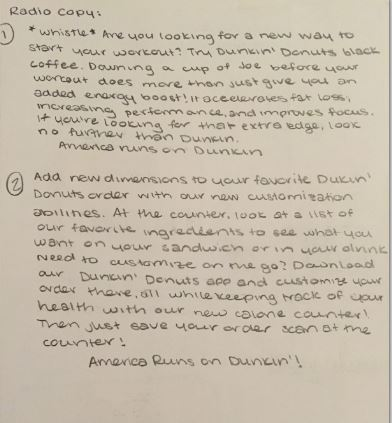 Radio Copy:
① *whistle* Are you looking for a new way to
start your workout? Try Dunkin' Donuts black
coffee. Downing a cup of Joe before your
workout does more than just give you an
added energy boost! it accelerates fat loss,
increasing performance, and improves focus.
If you're looking for that extra edge, look
no further than Dunkin.
America runs on Dunkin
② Add new dimensions to your favorite Dukin'
Donuts order with our new customization
abilities. At the counter, look at a list of
our favorite ingredients to see what you
want on your sandwich or in your drink
Need to customize on the go? Download
our Dunkin' Donuts app and customize your
order there, all while keeping track of your
health with our new calorie counter!
Then just save your order scan at the
counter!
America Runs on Dunkin'!